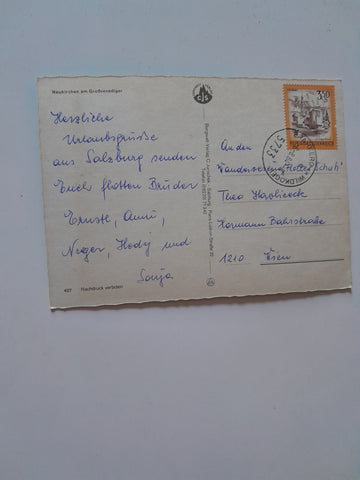 Neukirchen am Großvenediger
Herzliche
Urlaubsgrüße
aus Salzburg senden
Euch flotten Brüder
Ernstl, Anni,
Neger, Hedy und
Sonja
427 Nachdruck verboten
cjs
3.50
5733
WILDKOGEL
An den
Wanderverein "Flotter Schuh"
Theo
Hermann Bahrstraße
1210 Wien